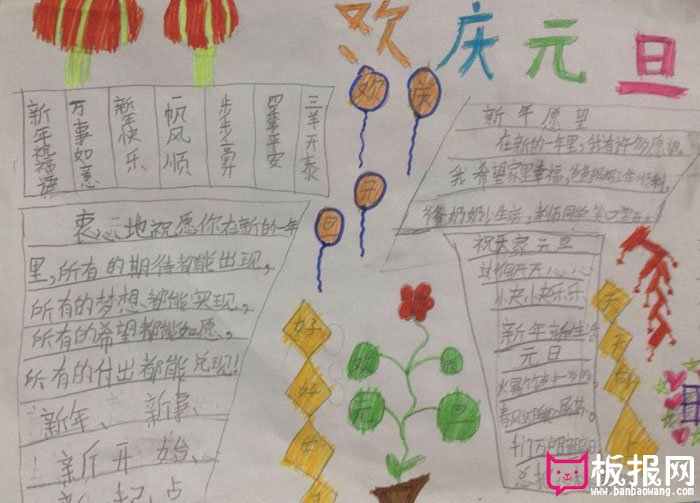 欢庆元旦
欢
庆
元
旦
新年祝福语
万事如意
新年快乐
一帆风顺
步步高升
四季平安
三羊开泰
新年愿望
在新的一年里,我有许多愿望。
我希望家里幸福,爸爸妈妈工作顺利,
衷心地祝愿你在新的一年
里,所有的期待都能出现,
所有的梦想都能实现,
所有的希望都能如愿,
所有的付出都能兑现!
新年、新事、
新开始、
新起点
祝大家元旦
过得开开心心
快快乐乐
新年新生活
元旦
好
好
学
天
天
向
上
欢
乐
元
旦
板报网
www.banbaowang.com